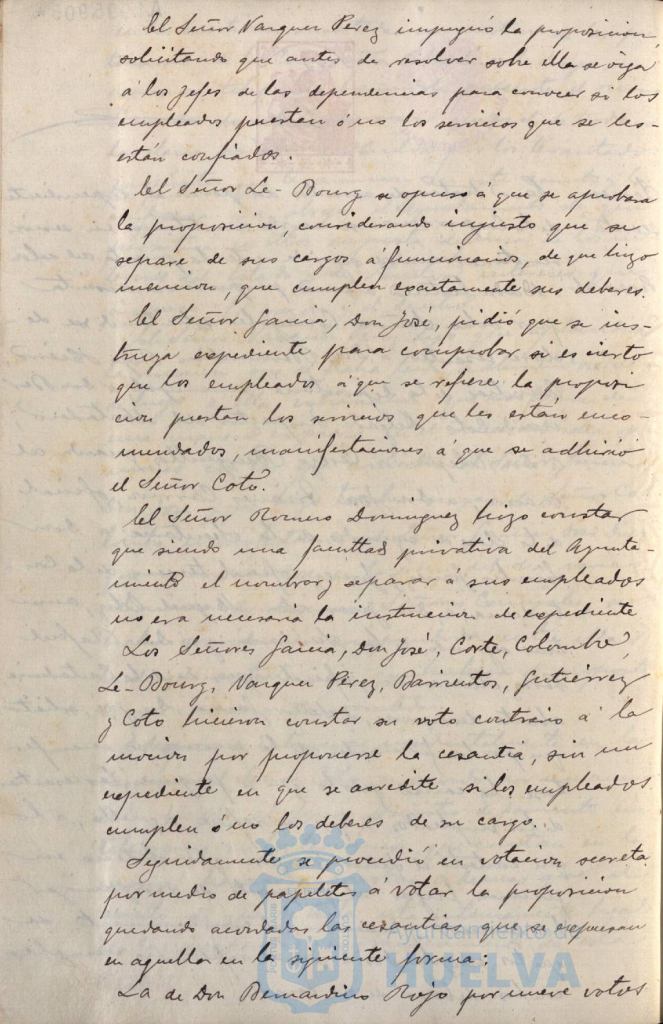 El Señor Vazquez Perez impugnó la proposicion,
solicitando que antes de resolver sobre ella se oiga
á los jefes de las dependencias para conocer si los
empleados prestan ó no los servicios que se les
están confiados.
El Señor Le-Bourg se opuso á que se aprobara
la proposicion, considerando injusto que se
separe de sus cargos á funcionarios, de que hizo
mencion, que cumplen exactamente sus deberes.
El Señor Garcia, Don José, pidió que se ins-
truya expediente para comprobar si es cierto
que los empleados á que se refiere la proposi
cion prestan los servicios que les están enco-
mendados, manifestaciones á que se adhirió
el Señor Coto.
El Señor Romero Dominguez hizo constar
que siendo una facultad privativa del Ayunta-
miento el nombrar y separar á sus empleados
no era necesaria la instruccion de expediente
Los Señores Garcia, Don José, Corte, Colombo,
Le-Bourg, Vazquez Pérez, Barrientos, Gutiérrez
y Coto hicieron constar su voto contrario á la
mocion por proponerse la cesantia, sin un
expediente en que se acredite si los empleados
cumplen ó no los deberes de su cargo.
Seguidamente se procedió en votacion secreta
por medio de papeletas á votar la proposicion
quedando acordadas las cesantias que se expresan
en aquella en la siguiente forma:
La de Don Bernardino Rojo por nueve votos
Ayuntamiento de
HUELVA